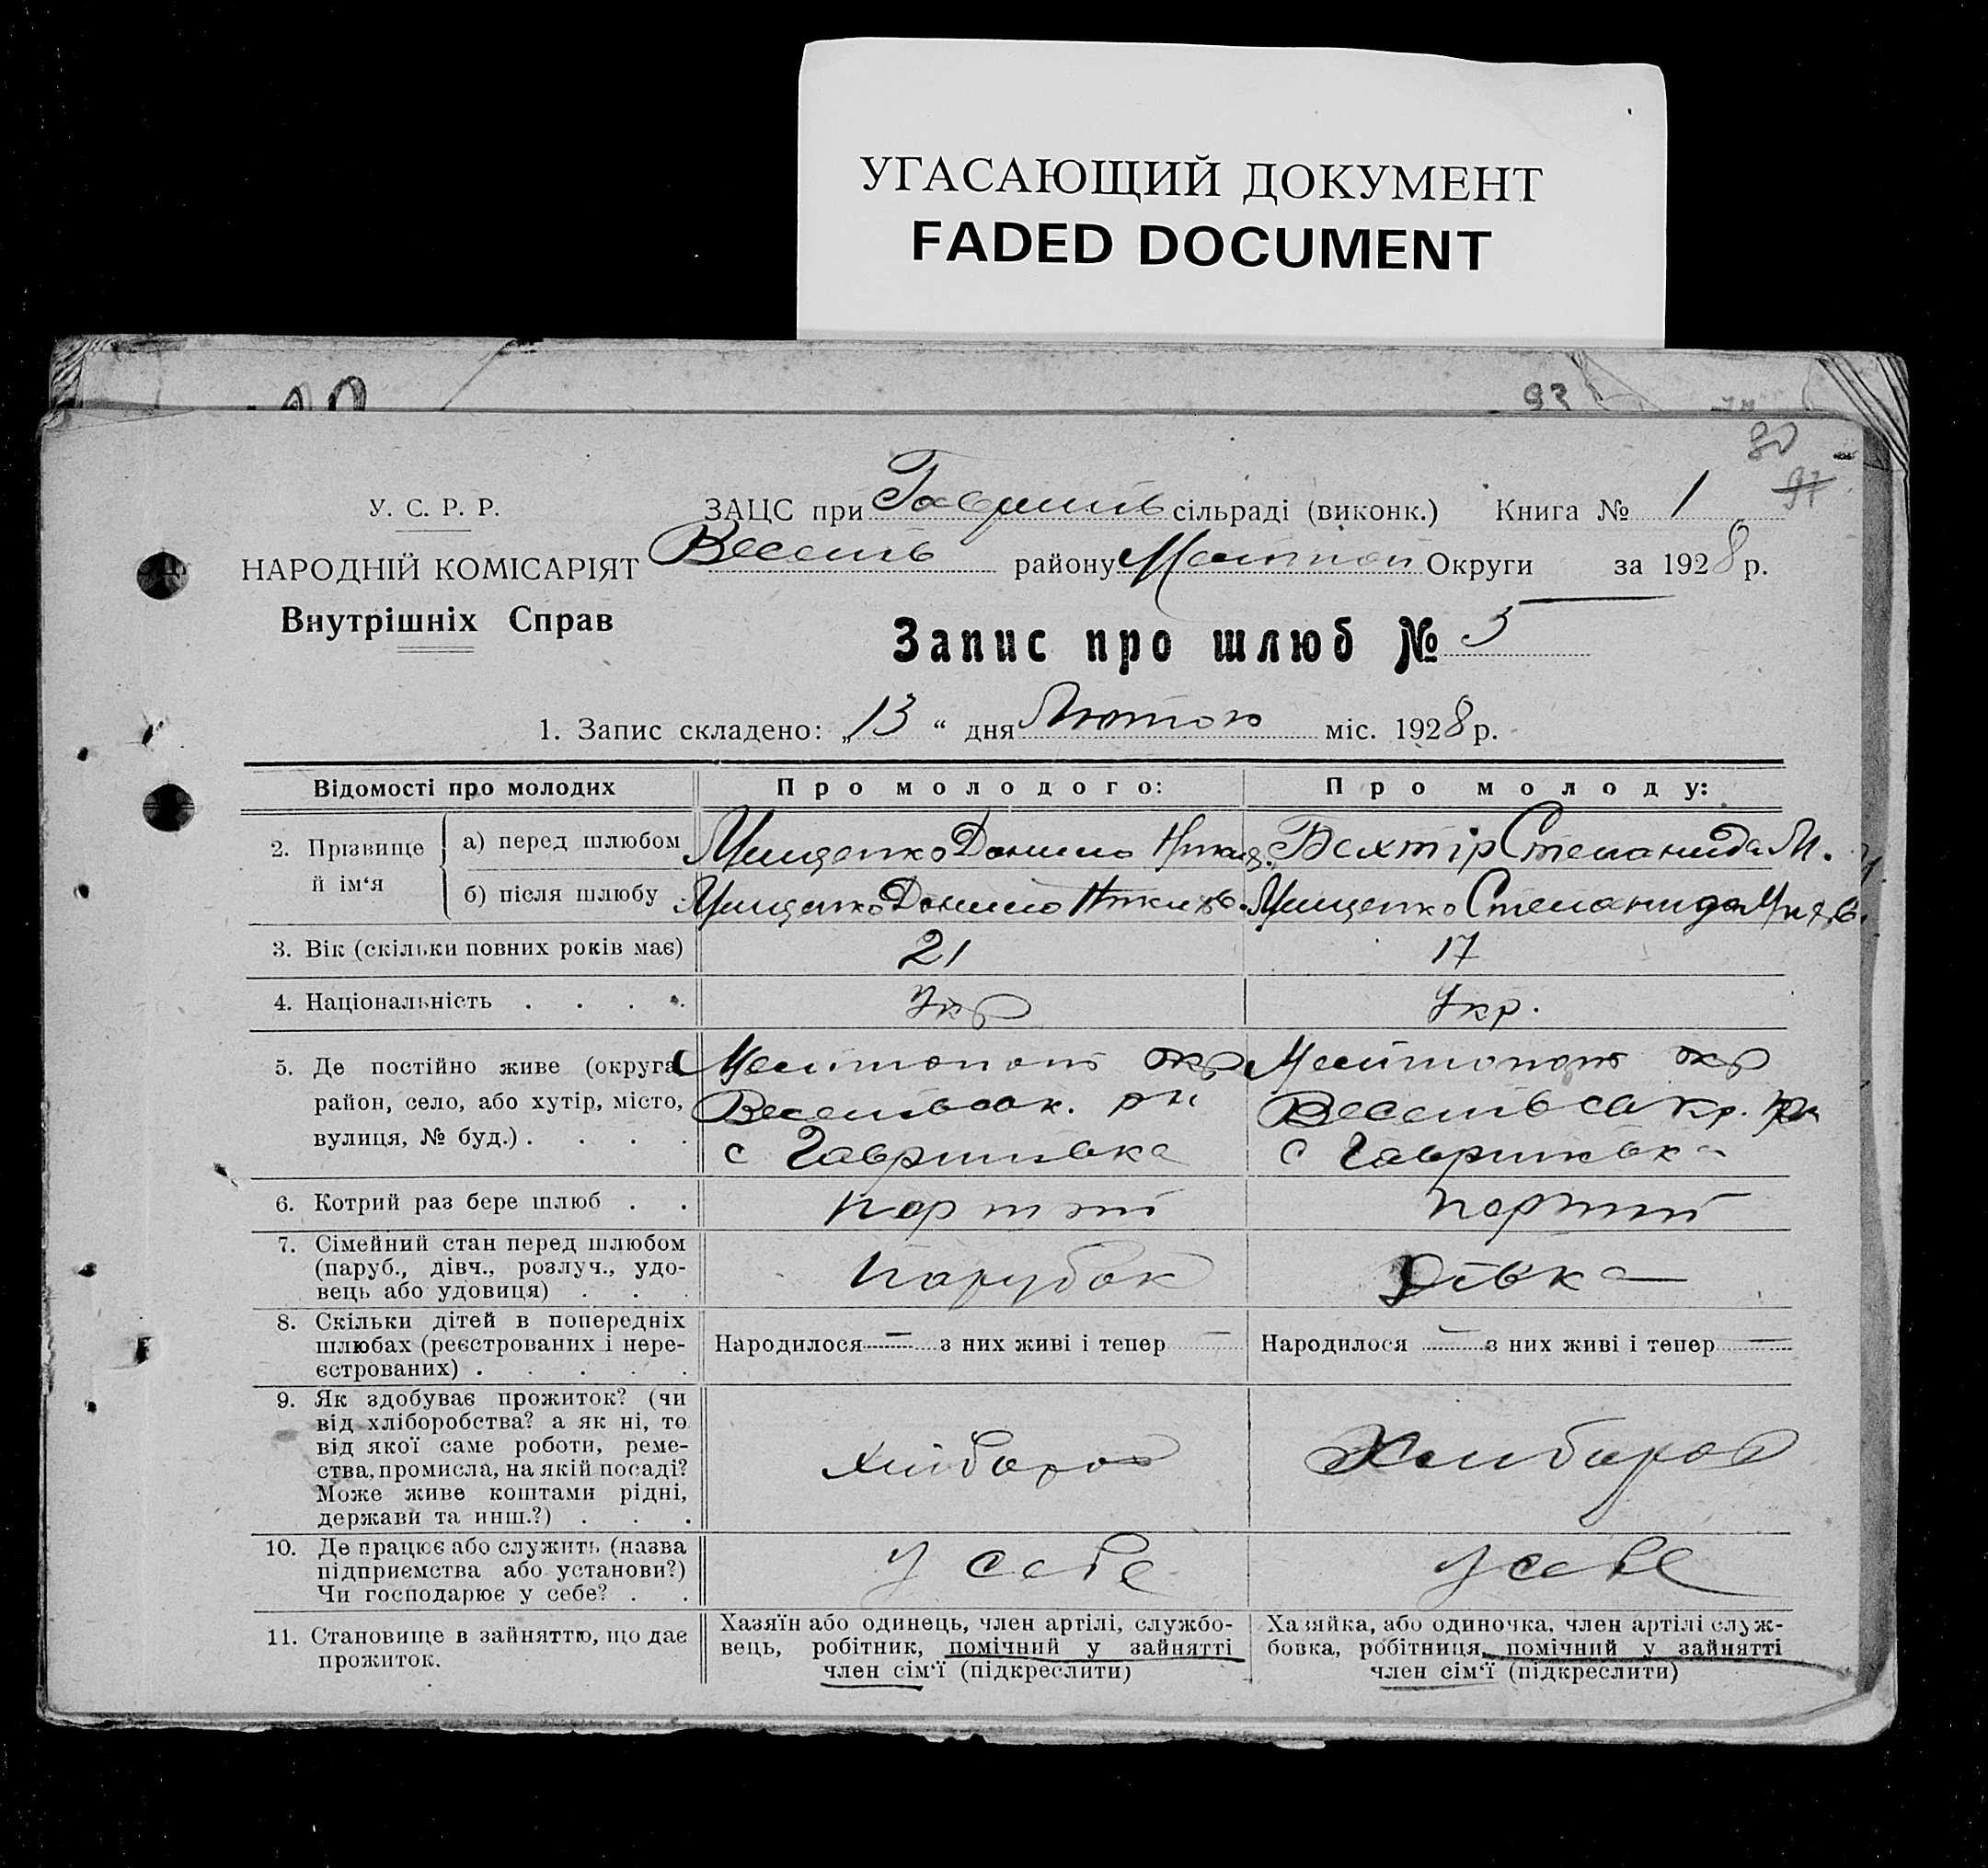 УГАСАЮЩИЙ ДОКУМЕНТ
FADED DOCUMENT
93
80
97
У. С. Р. Р.
НАРОДНІЙ КОМІСАРІЯТ
Внутрішніх Справ
ЗАЦС при Гаврилів сільраді (виконк.) Книга № 1
Веселів району Мелітоп Округи за 1928 р.
Запис про шлюб № 5
1. Запис складено: „13“ дня Лютого міс. 1928 р.
Відомості про молодих
Про молодого:
Про молоду:
2. Прізвище й ім‘я
а) перед шлюбом
Мищенко Данило
Бехтір Степанида М.
б) після шлюбу
Мищенко Данило
Мищенко Степанида
3. Вік (скільки повних років має)
21
17
4. Національність . . . .
Укр
Укр.
5. Де постійно живе (округа
район, село, або хутір, місто,
вулиця, № буд.) . . . .
Мелітопол окр
Веселівськ. рн
с Гаврилівка
Мелітопол окр
с Гаврилівка
6. Котрий раз бере шлюб . .
перший
перший
7. Сімейний стан перед шлюбом
(паруб., дівч., розлуч., удо-
вець або удовиця) . . .
Парубок
Дівка
8. Скільки дітей в попередніх
шлюбах (реєстрованих і нере-
єстрованих) . . . . .
Народилося — з них живі і тепер —
Народилося — з них живі і тепер —
9. Як здобуває прожиток? (чи
від хліборобства? а як ні, то
від якої саме роботи, реме-
ства, промисла, на якій посаді?
Може живе коштами рідні,
держави та инш.?) . . .
Хлібороб
Хлибороб
10. Де працює або служить (назва
підприємства або установи?)
Чи господарює у себе? . .
у себе
у себе
11. Становище в зайняттю, що дає
прожиток.
Хазяїн або одинець, член артілі, службо-
вець, робітник, помічний у зайнятті
член сім‘ї (підкреслити)
Хазяйка, або одиночка, член артілі служ-
бовка, робітниця, помічний у зайнятті
член сім‘ї (підкреслити)